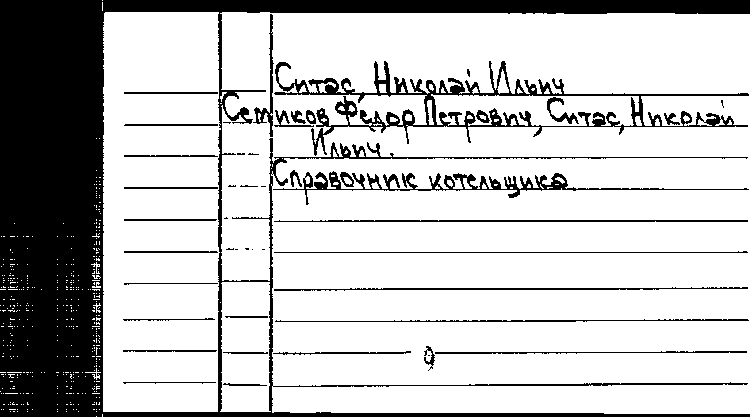 Ситас, Николай Ильич
Семиков, Фёдор Петрович, Ситас, Николай
Ильич.
Справочник котельщика